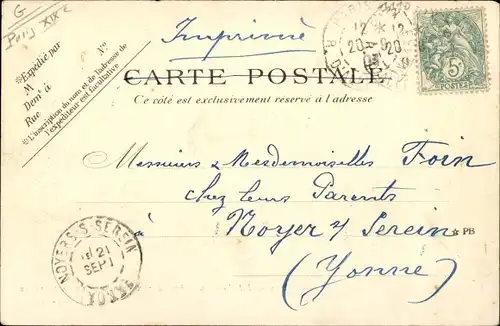 G
Paris XIXe
Imprimé
*Expédié par
M
Demt à
Rue
No
*L'inscription du nom et de l'adresse de
l'expéditeur est facultative
PARIS
12 * 12
20 20
5c
POSTES
CARTE POSTALE
Ce côté est exclusivement réservé à l'adresse
Messieurs & Mesdemoiselles Foin
chez leurs Parents
à Noyer s/ Serein
* PB
(Yonne)
NOYERS-S-SEREIN
21
SEPT